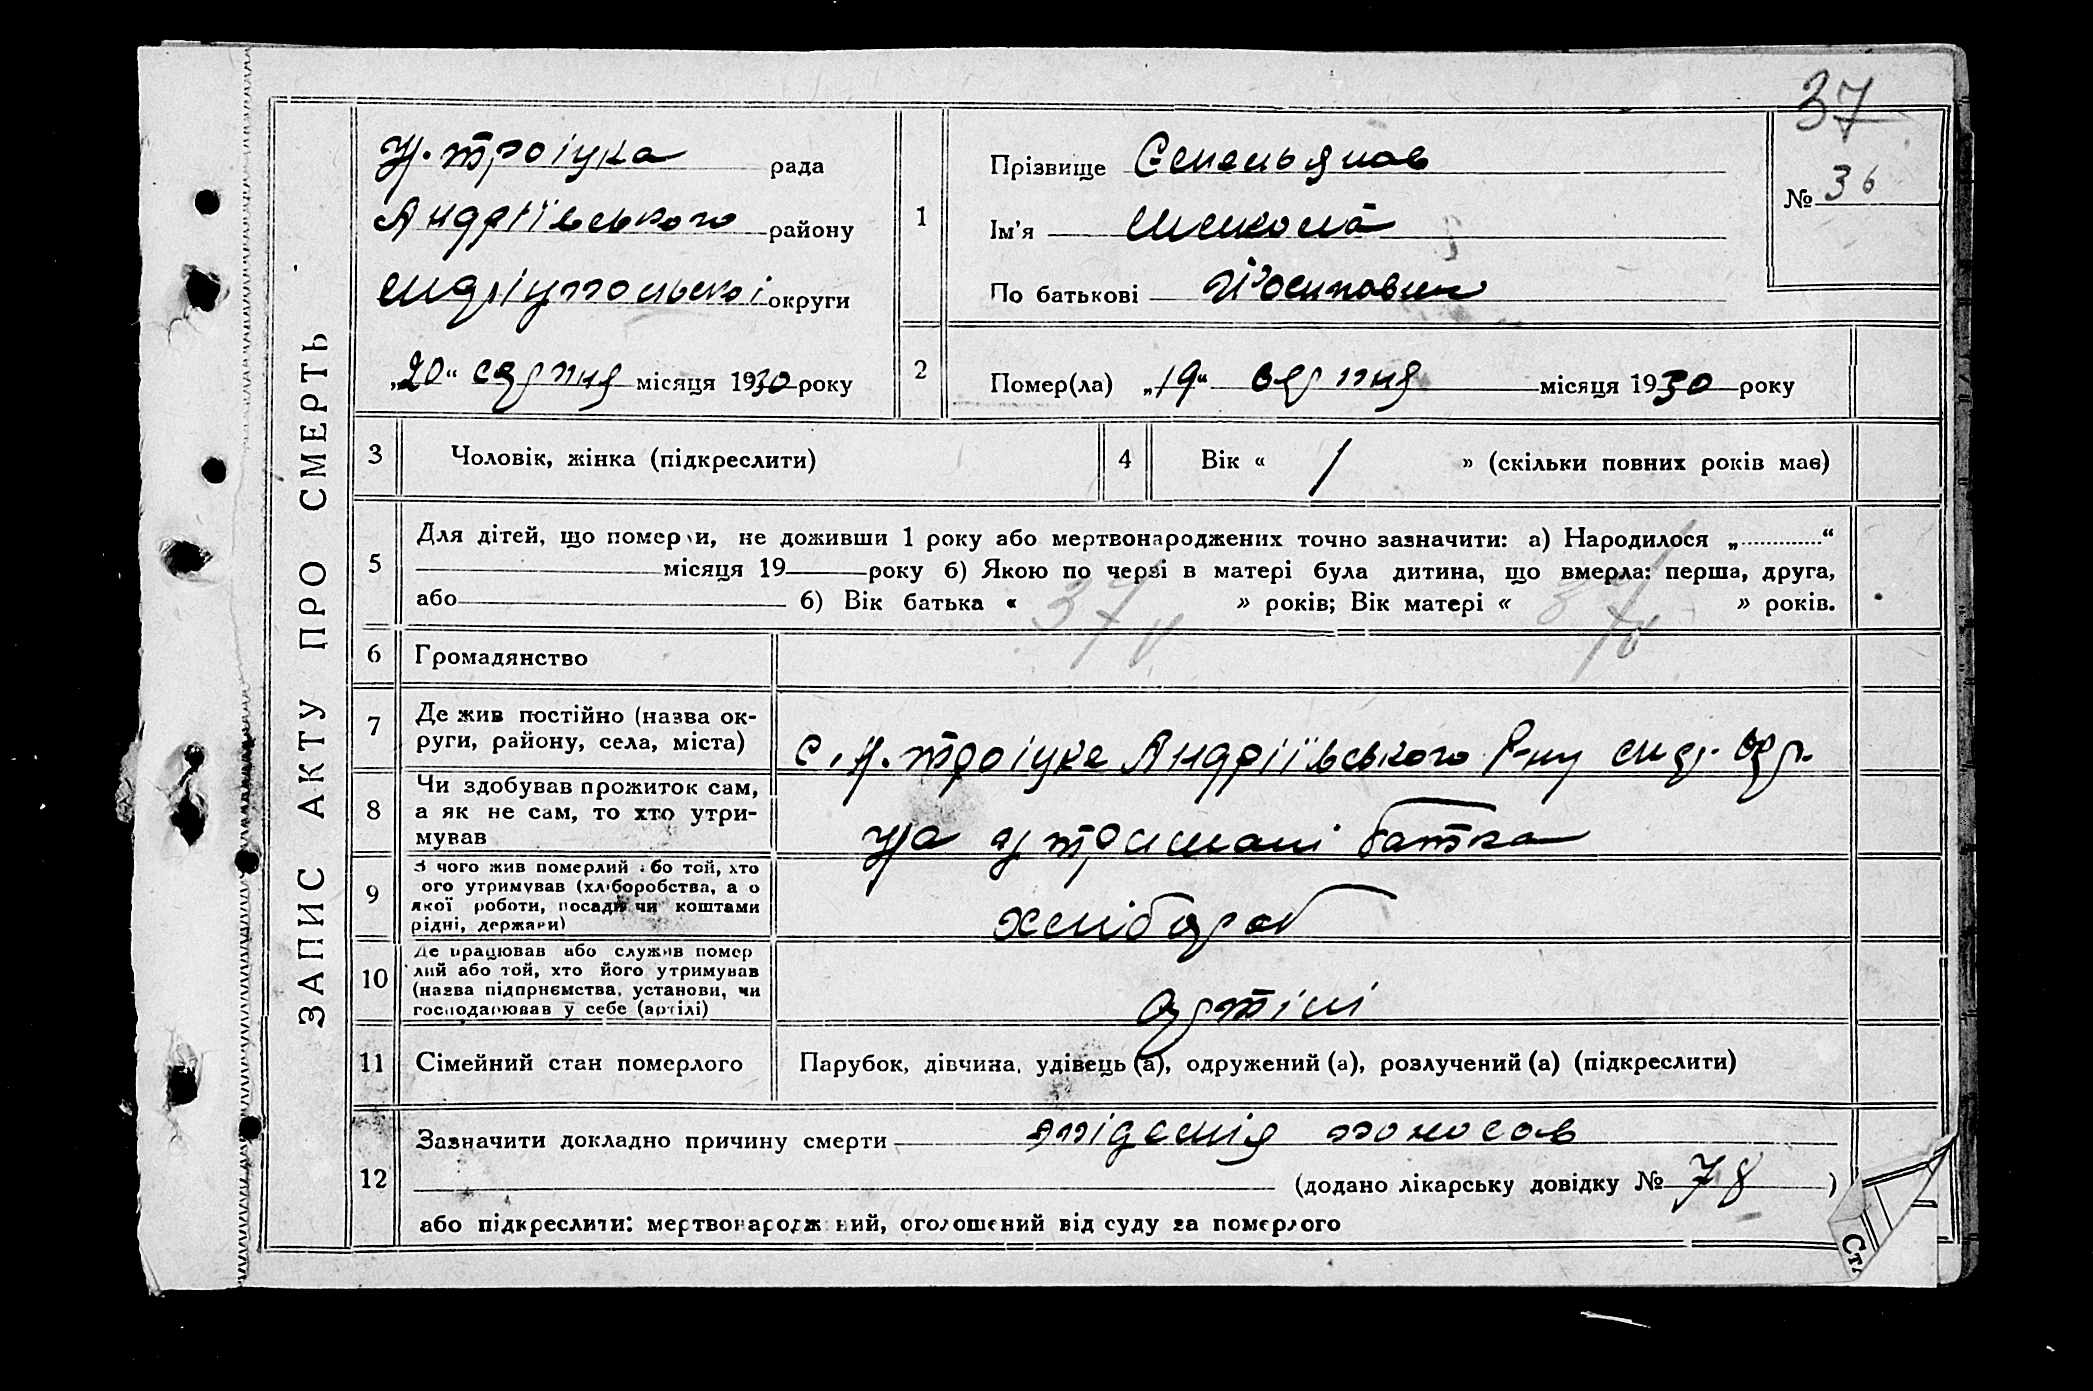 37
ЗАПИС АКТУ ПРО СМЕРТЬ
Н.троіцка рада
Андріївського району
Маріупольскої округи
„20“ серпня місяця 1930 року
1
Прізвище Емельянов
Ім'я Микола
По батькові Йосипович
№ 36
2
Помер(ла) „19“ серпня місяця 1930 року
3
Чоловік, жінка (підкреслити)
4
Вік « 1 » (скільки повних років має)
5
Для дітей, що померли, не доживши 1 року або мертвонароджених точно зазначити: а) Народилося „ “
місяця 19 року б) Якою по черзі в матері була дитина, що вмерла: перша, друга,
або б) Вік батька « » років; Вік матері « » років.
6
Громадянство
7
Де жив постійно (назва ок-
руги, району, села, міста)
с. Н.троіцке Андріївського Р-ну мар. окр.
8
Чи здобував прожиток сам,
а як не сам, то хто утри-
мував
На утримані батка
9
З чого жив померлий або той, хто
ого утримував (хліборобства, а о
якої роботи, посади чи коштами
рідні, держави)
хлібороб
10
Де працював або служив помер
лий або той, хто його утримував
(назва підприємства, установи, чи
господарював у себе (артілі)
артілі
11
Сімейний стан померлого
Парубок, дівчина, удівець (а), одружений (а), розлучений (а) (підкреслити)
12
Зазначити докладно причину смерти епідемія поносов
(додано лікарську довідку № 78 )
або підкреслити: мертвонароджений, оголошений від суду за померлого
Ст